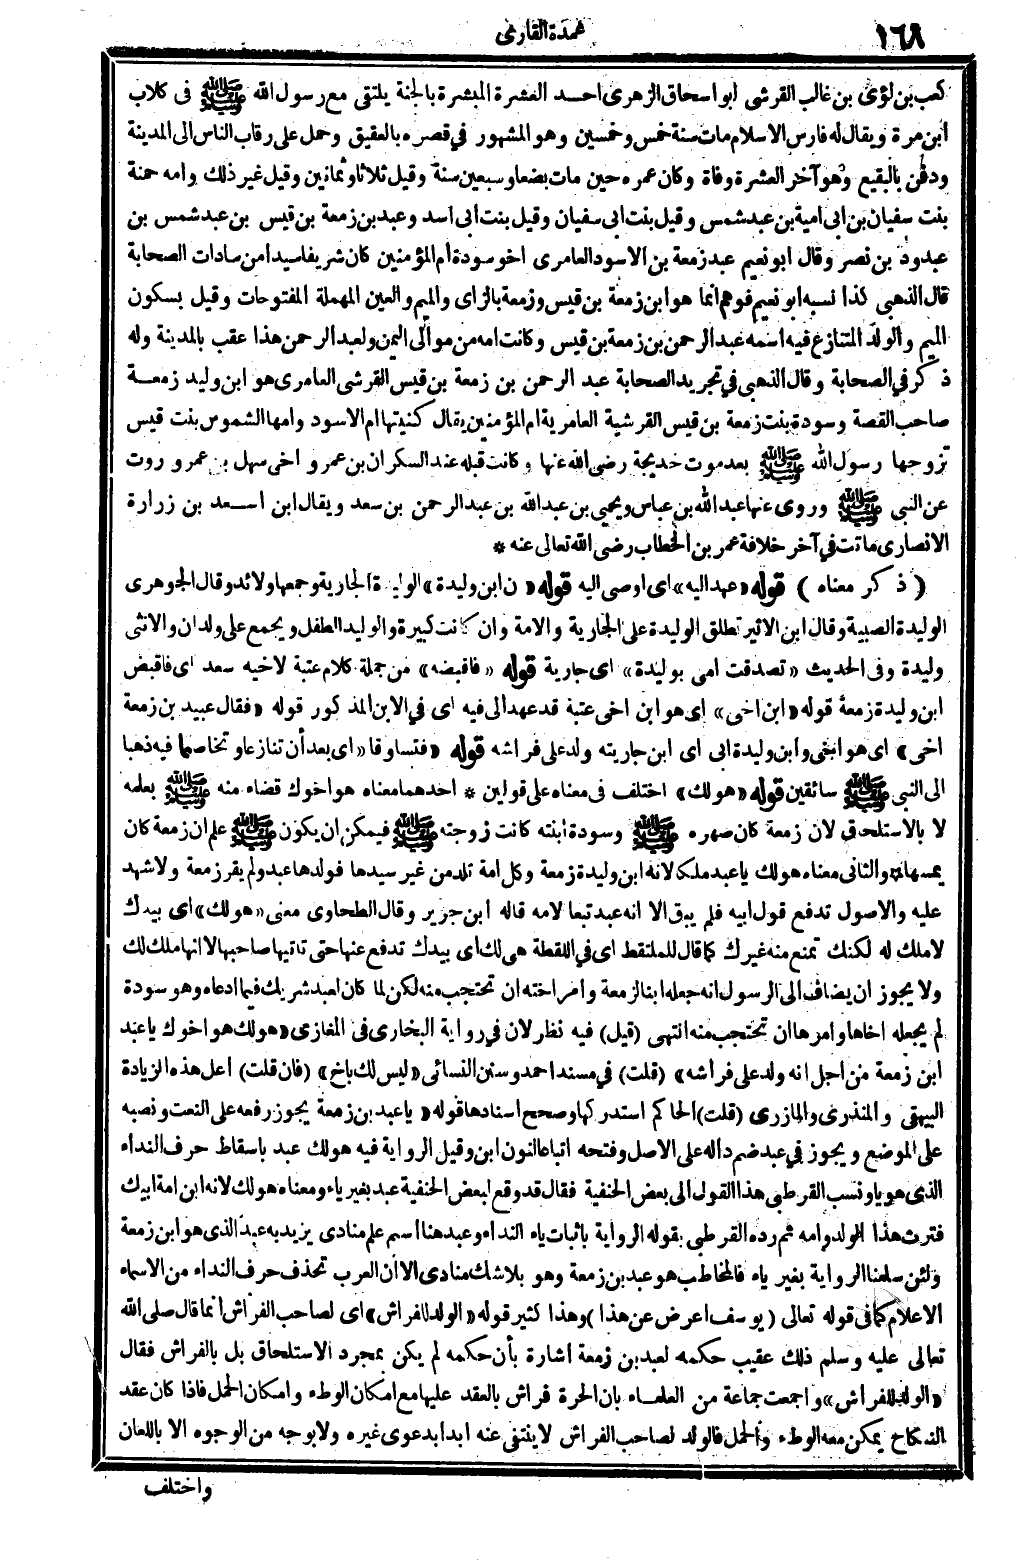 ١٦٨
عمدة القارى
كعب بن لؤى بن غالب القرشى ابو اسحاق الزهرى احد العشرة المبشرة بالجنة يلتقى مع رسول الله ﷺ فى كلاب
ابن مرة ويقال له فارس الاسلام مات سنة خمس وخمسين وهو المشهور في قصره بالعقيق وحمل على رقاب الناس الى المدينة
ودفن بالبقيع وهو آخر العشرة وفاة وكان عمره حين مات بضعا وسبعين سنة وقيل ثلاثا وثمانين وقيل غير ذلك وامه حمنة
بنت سفيان بن ابى امية بن عبد شمس وقيل بنت ابى سفيان وقيل بنت ابى اسد وعبد بن زمعة بن قيس بن عبد شمس بن
عبدود بن نصر وقال ابو نعيم عبد زمعة بن الاسود العامرى اخو سودة أم المؤمنين كان شريفا سيدا من سادات الصحابة
قال الذهبى كذا نسبه ابو نعيم فوهم انما هو ابن زمعة بن قيس وزمعة بالزاى والميم والعين المهملة المفتوحات وقيل بسكون
الميم والولد المتنازع فيه اسمه عبد الرحمن بن زمعة بن قيس وكانت امه من موالى اليمن ولعبد الرحمن هذا عقب بالمدينة وله
ذكر في الصحابة وقال الذهبى في تجريد الصحابة عبد الرحمن بن زمعة بن قيس القرشى العامرى هو ابن وليد زمعة
صاحب القصة وسودة بنت زمعة بن قيس القرشية العامرية ام المؤمنين يقال كنيتها ام الاسود وامها الشموس بنت قيس
تزوجها رسول الله ﷺ بعد موت خديجة رضى الله عنها وكانت قبله عند السكران بن عمرو اخى سهل بن عمرو روت
عن النبى ﷺ وروى عنها عبد الله بن عباس ويحيى بن عبد الله بن عبد الرحمن بن سعد ويقال ابن اسعد بن زرارة
الانصارى ماتت في آخر خلافة عمر بن الخطاب رضى الله تعالى عنه *
(ذكر معناه) قوله «عهد اليه» اى اوصى اليه قوله «ن ابن وليدة» الوليدة الجارية وجمعها ولائد وقال الجوهرى
الوليدة الصبية وقال ابن الاثير تطلق الوليدة على الجارية والامة وان كانت كبيرة والوليد الطفل ويجمع على ولدان والانثى
وليدة وفى الحديث «تصدقت امى بوليدة» اى جارية قوله «فاقبضه» من جملة كلام عتبة لاخيه سعد اى فاقبض
ابن وليدة زمعة قوله «ابن اخى» اى هو ابن اخى عتبة قد عهد الى فيه اى في الابن المذكور قوله «فقال عبيد بن زمعة
اخى» اى هو ابنى وابن وليدة ابى اى ابن جاريته ولد على فراشه قوله «فتساوقا» اى بعد أن تنازعا وتخاصما فيه ذهبا
الى النبى ﷺ سائقين قوله «هولك» اختلف فى معناه على قولين * احدهما معناه هو اخوك قضاء منه ﷺ بعلمه
لا بالاستلحاق لان زمعة كان صهره ﷺ وسودة ابنته كانت زوجته ﷺ فيمكن ان يكون ﷺ علم ان زمعة كان
يمسها * والثانى معناه هولك يا عبد ملكا لانه ابن وليدة زمعة وكل امة تلد من غير سيدها فولدها عبد ولم يقر زمعة ولا شهد
عليه والاصول تدفع قول ابيه فلم يبق الا انه عبد تبعا لامه قاله ابن جرير وقال الطحاوى معنى «هولك» اى بيدك
لا ملك له لكنك تمنع منه غيرك كما قال للملتقط اى في اللقطة هى لك اى بيدك تدفع عنها حتى تاتيها صاحبها لا انها ملك لك
ولا يجوز ان يضاف الى الرسول انه جعله ابنا لزمعة وامر اخته ان تحتجب منه لكن لما كان لعبد شريك فيما ادعاه وهو سودة
لم يجعله اخاها وامرها ان تحتجب منه انتهى (قيل) فيه نظر لان في رواية البخارى فى المغازى «هولك هو اخوك يا عبد
ابن زمعة من اجل انه ولد على فراشه» (قلت) في مسند احمد وسنن النسائى «ليس لك باخ» (فان قلت) اعل هذه الزيادة
البيهقى والمنذرى والمازرى (قلت) الحاكم استدركها وصحح اسنادها قوله «يا عبد بن زمعة يجوز رفعه على النعت ونصبه
على الموضع ويجوز في عبد ضم داله على الاصل وفتحه اتباعا لنون ابن وقيل الرواية فيه هولك عبد باسقاط حرف النداء
الذى هو يا ونسب القرطبى هذا القول الى بعض الحنفية فقال قد وقع لبعض الحنفية عبد بغير ياء ومعناه هولك لانه ابن امة ابيك
فترث هذا الولد وامه ثم رده القرطبى بقوله الرواية باثبات ياء النداء وعبد هنا اسم علم منادى يزيد به عبد الذى هو ابن زمعة
ولئن سلمنا الرواية بغير ياء فالمخاطب هو عبد بن زمعة وهو بلا شك منادى الا ان العرب تحذف حرف النداء من الاسماء
الاعلام كما فى قوله تعالى (يوسف اعرض عن هذا) وهذا كثير قوله «الولد للفراش» اى لصاحب الفراش انما قال صلى الله
تعالى عليه وسلم ذلك عقيب حكمه لعبد بن زمعة اشارة بأن حكمه لم يكن بمجرد الاستلحاق بل بالفراش فقال
«الولد للفراش» واجمعت جماعة من العلماء بان الحرة فراش بالعقد عليها مع امكان الوطء وامكان الحمل فاذا كان عقد
النكاح يمكن معه الوطء والحمل فالولد لصاحب الفراش لا ينتفى عنه ابدا بدعوى غيره ولا بوجه من الوجوه الا باللعان
واختلف